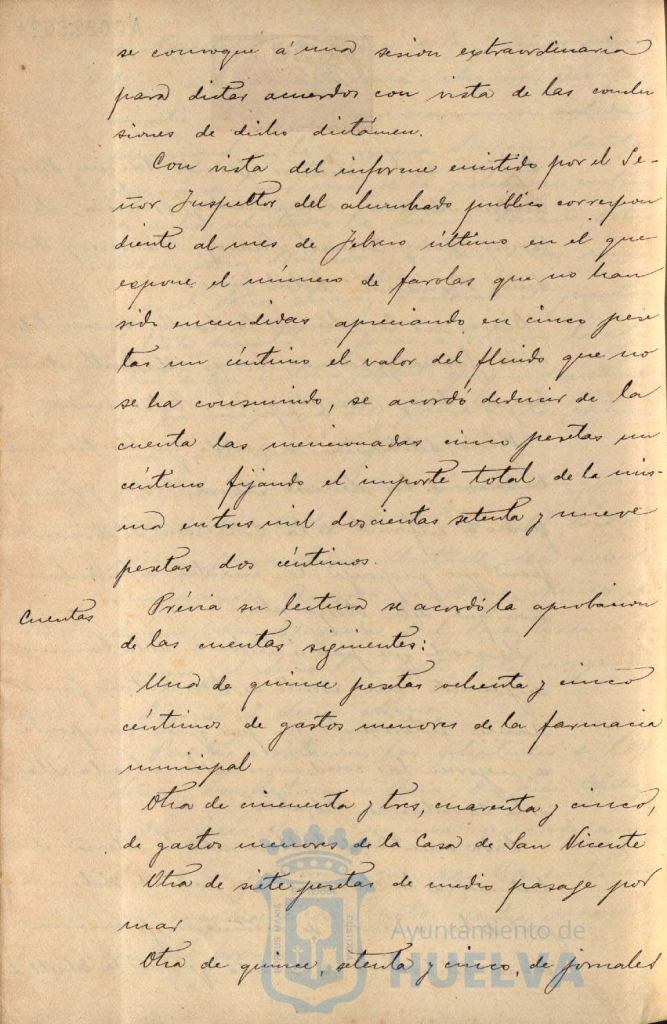 se convoque á una sesion extraordinaria
para dictar acuerdos con vista de las conclu
siones de dicho dictámen.
Con vista del informe emitido por el Se-
ñor Inspector del alumbrado público correspon
diente al mes de Febrero último en el que
expone el número de farolas que no han
sido encendidas apreciando en cinco pese
tas un céntimo el valor del fluido que no
se ha consumido, se acordó deducir de la
cuenta las mencionadas cinco pesetas un
céntimo fijando el importe total de la mis-
ma en tres mil doscientas setenta y nueve
pesetas dos céntimos.
Cuentas
Prévia su lectura se acordó la aprobacion
de las cuentas siguientes:
Una de quince pesetas ochenta y cinco
céntimos de gastos menores de la farmacia
municipal
Otra de cincuenta y tres, cuarenta y cinco,
de gastos menores de la Casa de San Vicente
Otra de siete pesetas de medio pasage por
mar
Otra de quince, setenta y cinco, de jornales
Ayuntamiento de
HUELVA